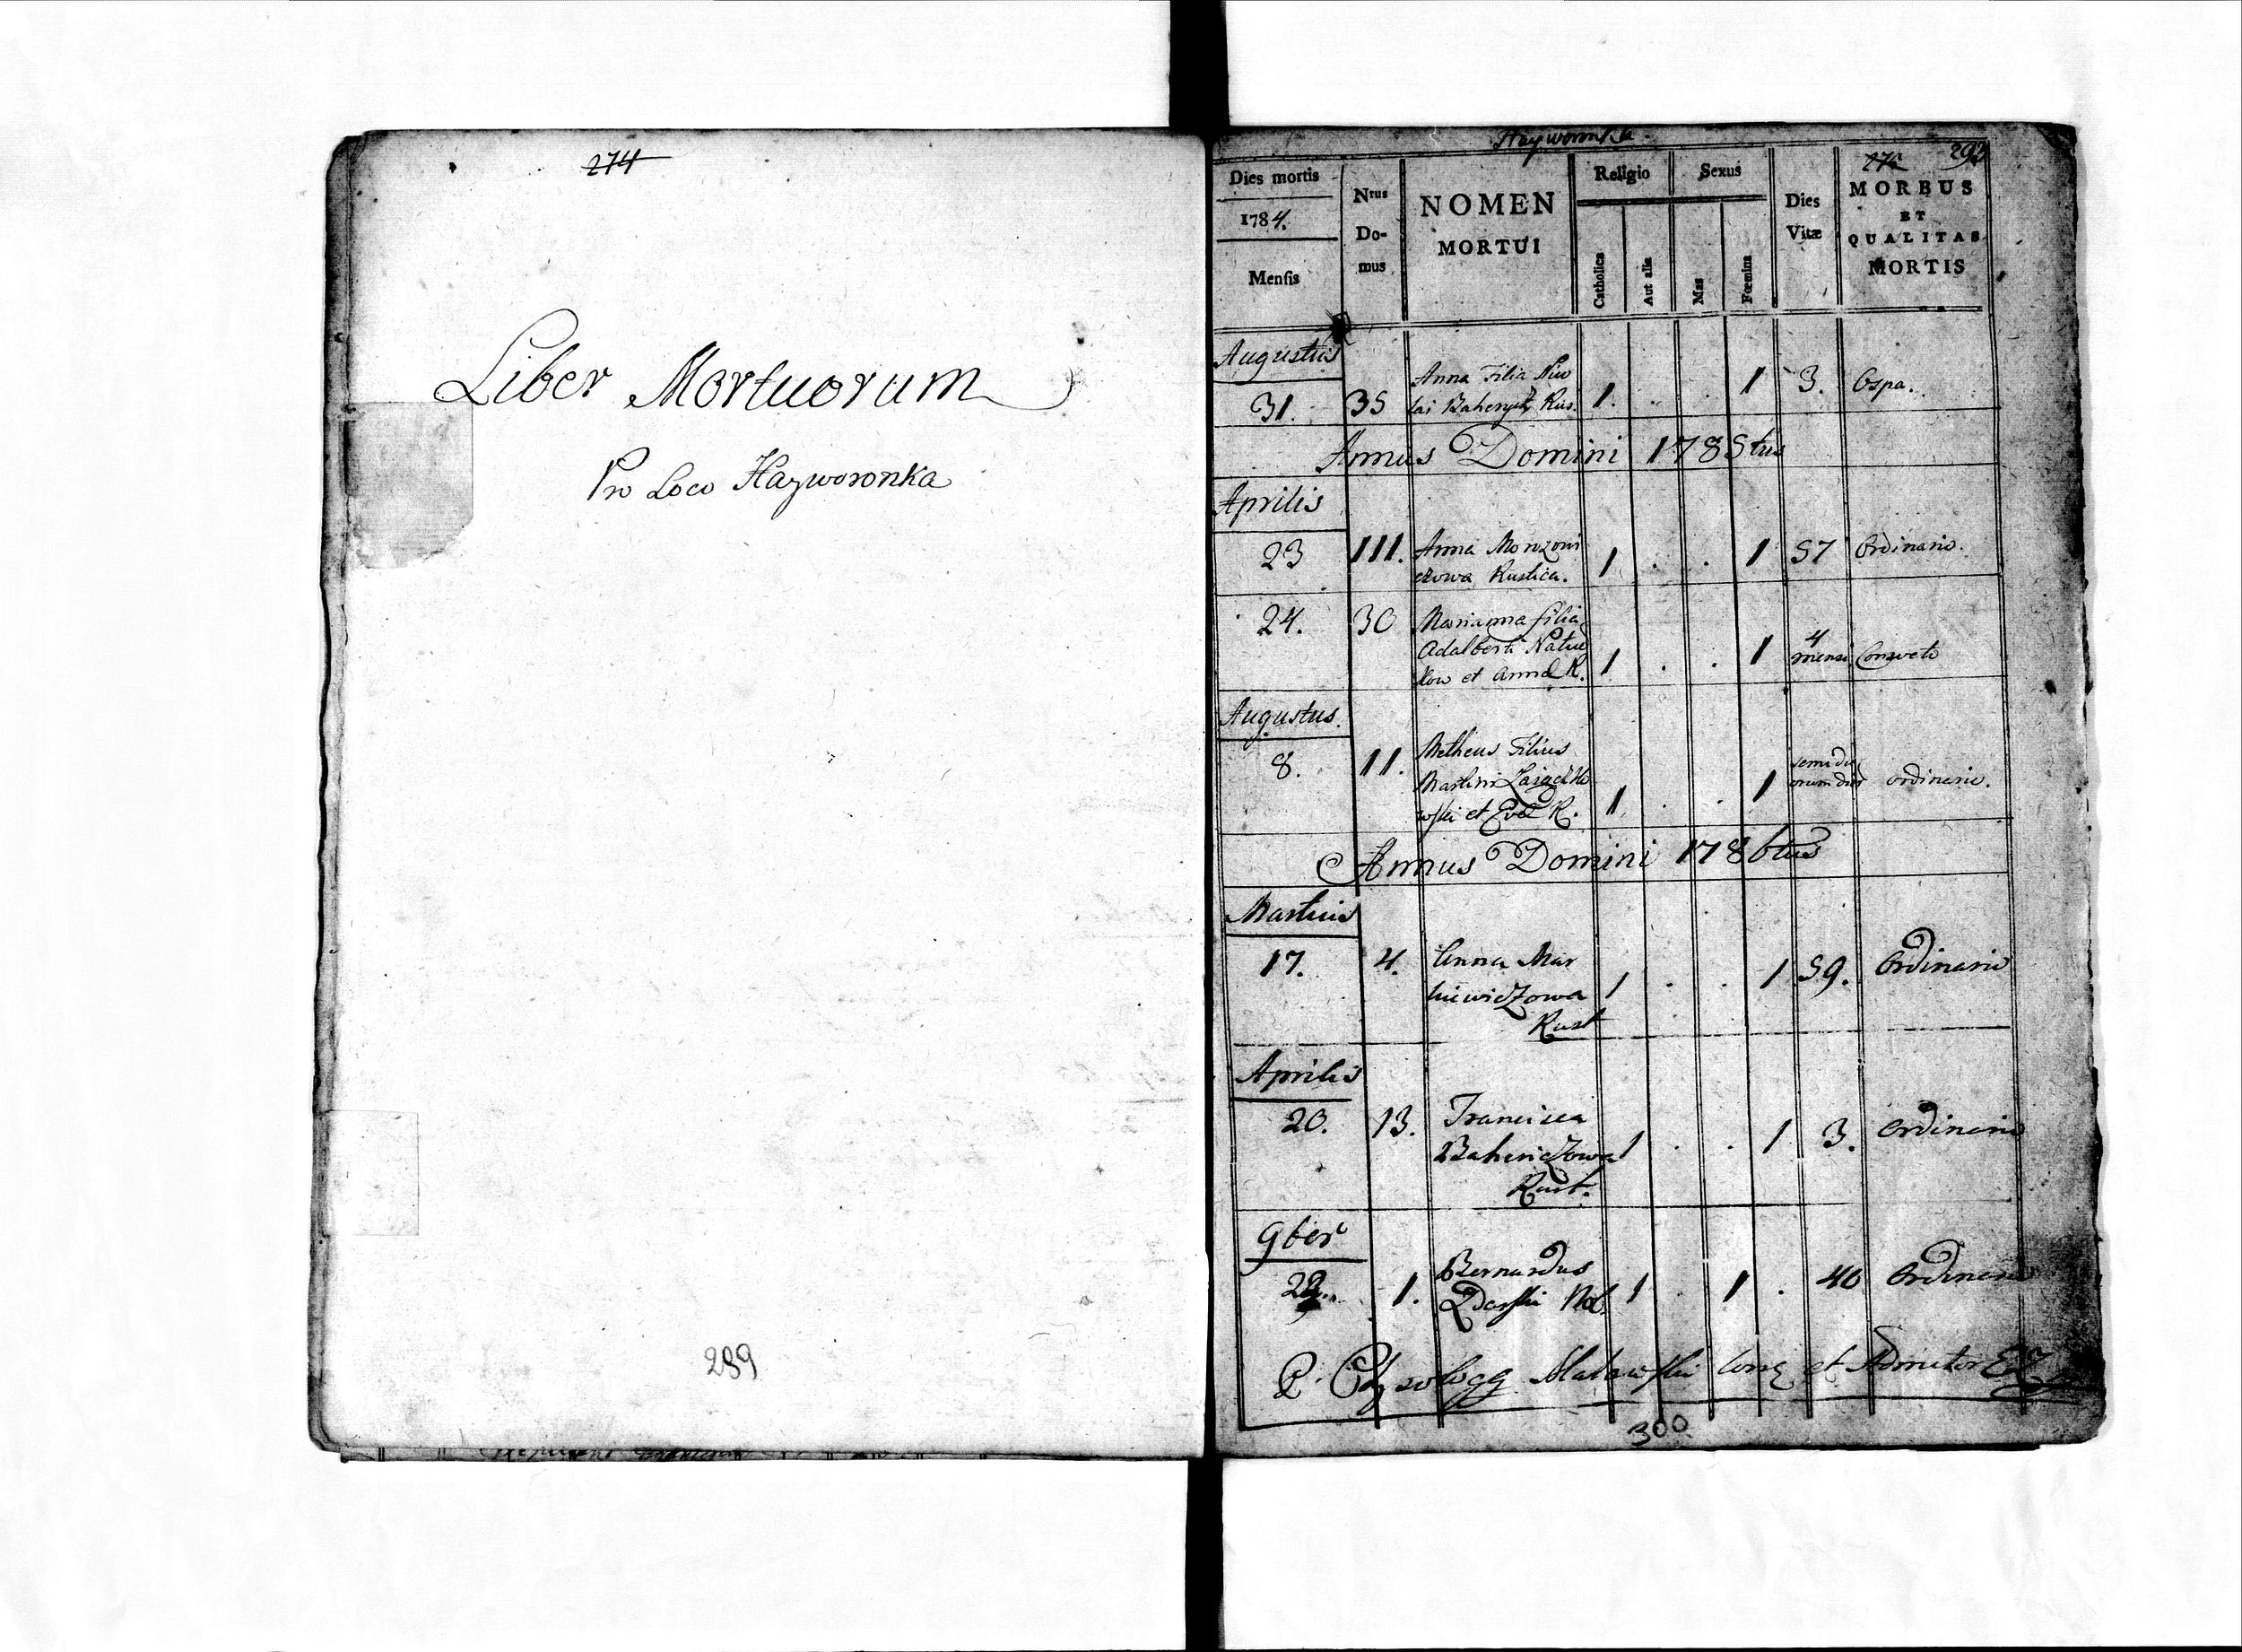 274
Liber Mortuorum
Pro Loco Hayworonka
289
Hayworonka
293
Dies mortis
1784.
Mensis
Nrus
Do-
mus
NOMEN
MORTUI
Religio
Catholica
Aut alia
Sexus
Mas
Fœmina
Dies
Vitæ
MORBUS
ET
QUALITAS
MORTIS
Augustus
31. 35 Anna Filia Nico
lai Rus. 1. . . 1 3. Ospa.
Annus Domini 1785tus
Aprilis
23 111. Anna Monzoni
czowa Rustica. 1 . . 1 57 Ordinario.
24. 30 Marianna filia
Adalberti
kow et Annæ R. 1 . . 1 4 mensi Consveto
Augustus.
8. 11. Matheus Filius
Martini
wski et Evæ R. 1. . . 1 ordinario.
Annus Domini 1786tus
Martius
17. 4. Anna Mar
kiewiczowa 1 . . 1 59. Ordinario
Rust
Aprilis
20. 13. Francisca
Bahericzowa 1 . . 1 3. Ordinario
Rust.
9ber
1. Bernardus
Zdarski Nob. 1 . 1 . 40 Ordinario
P. et
300